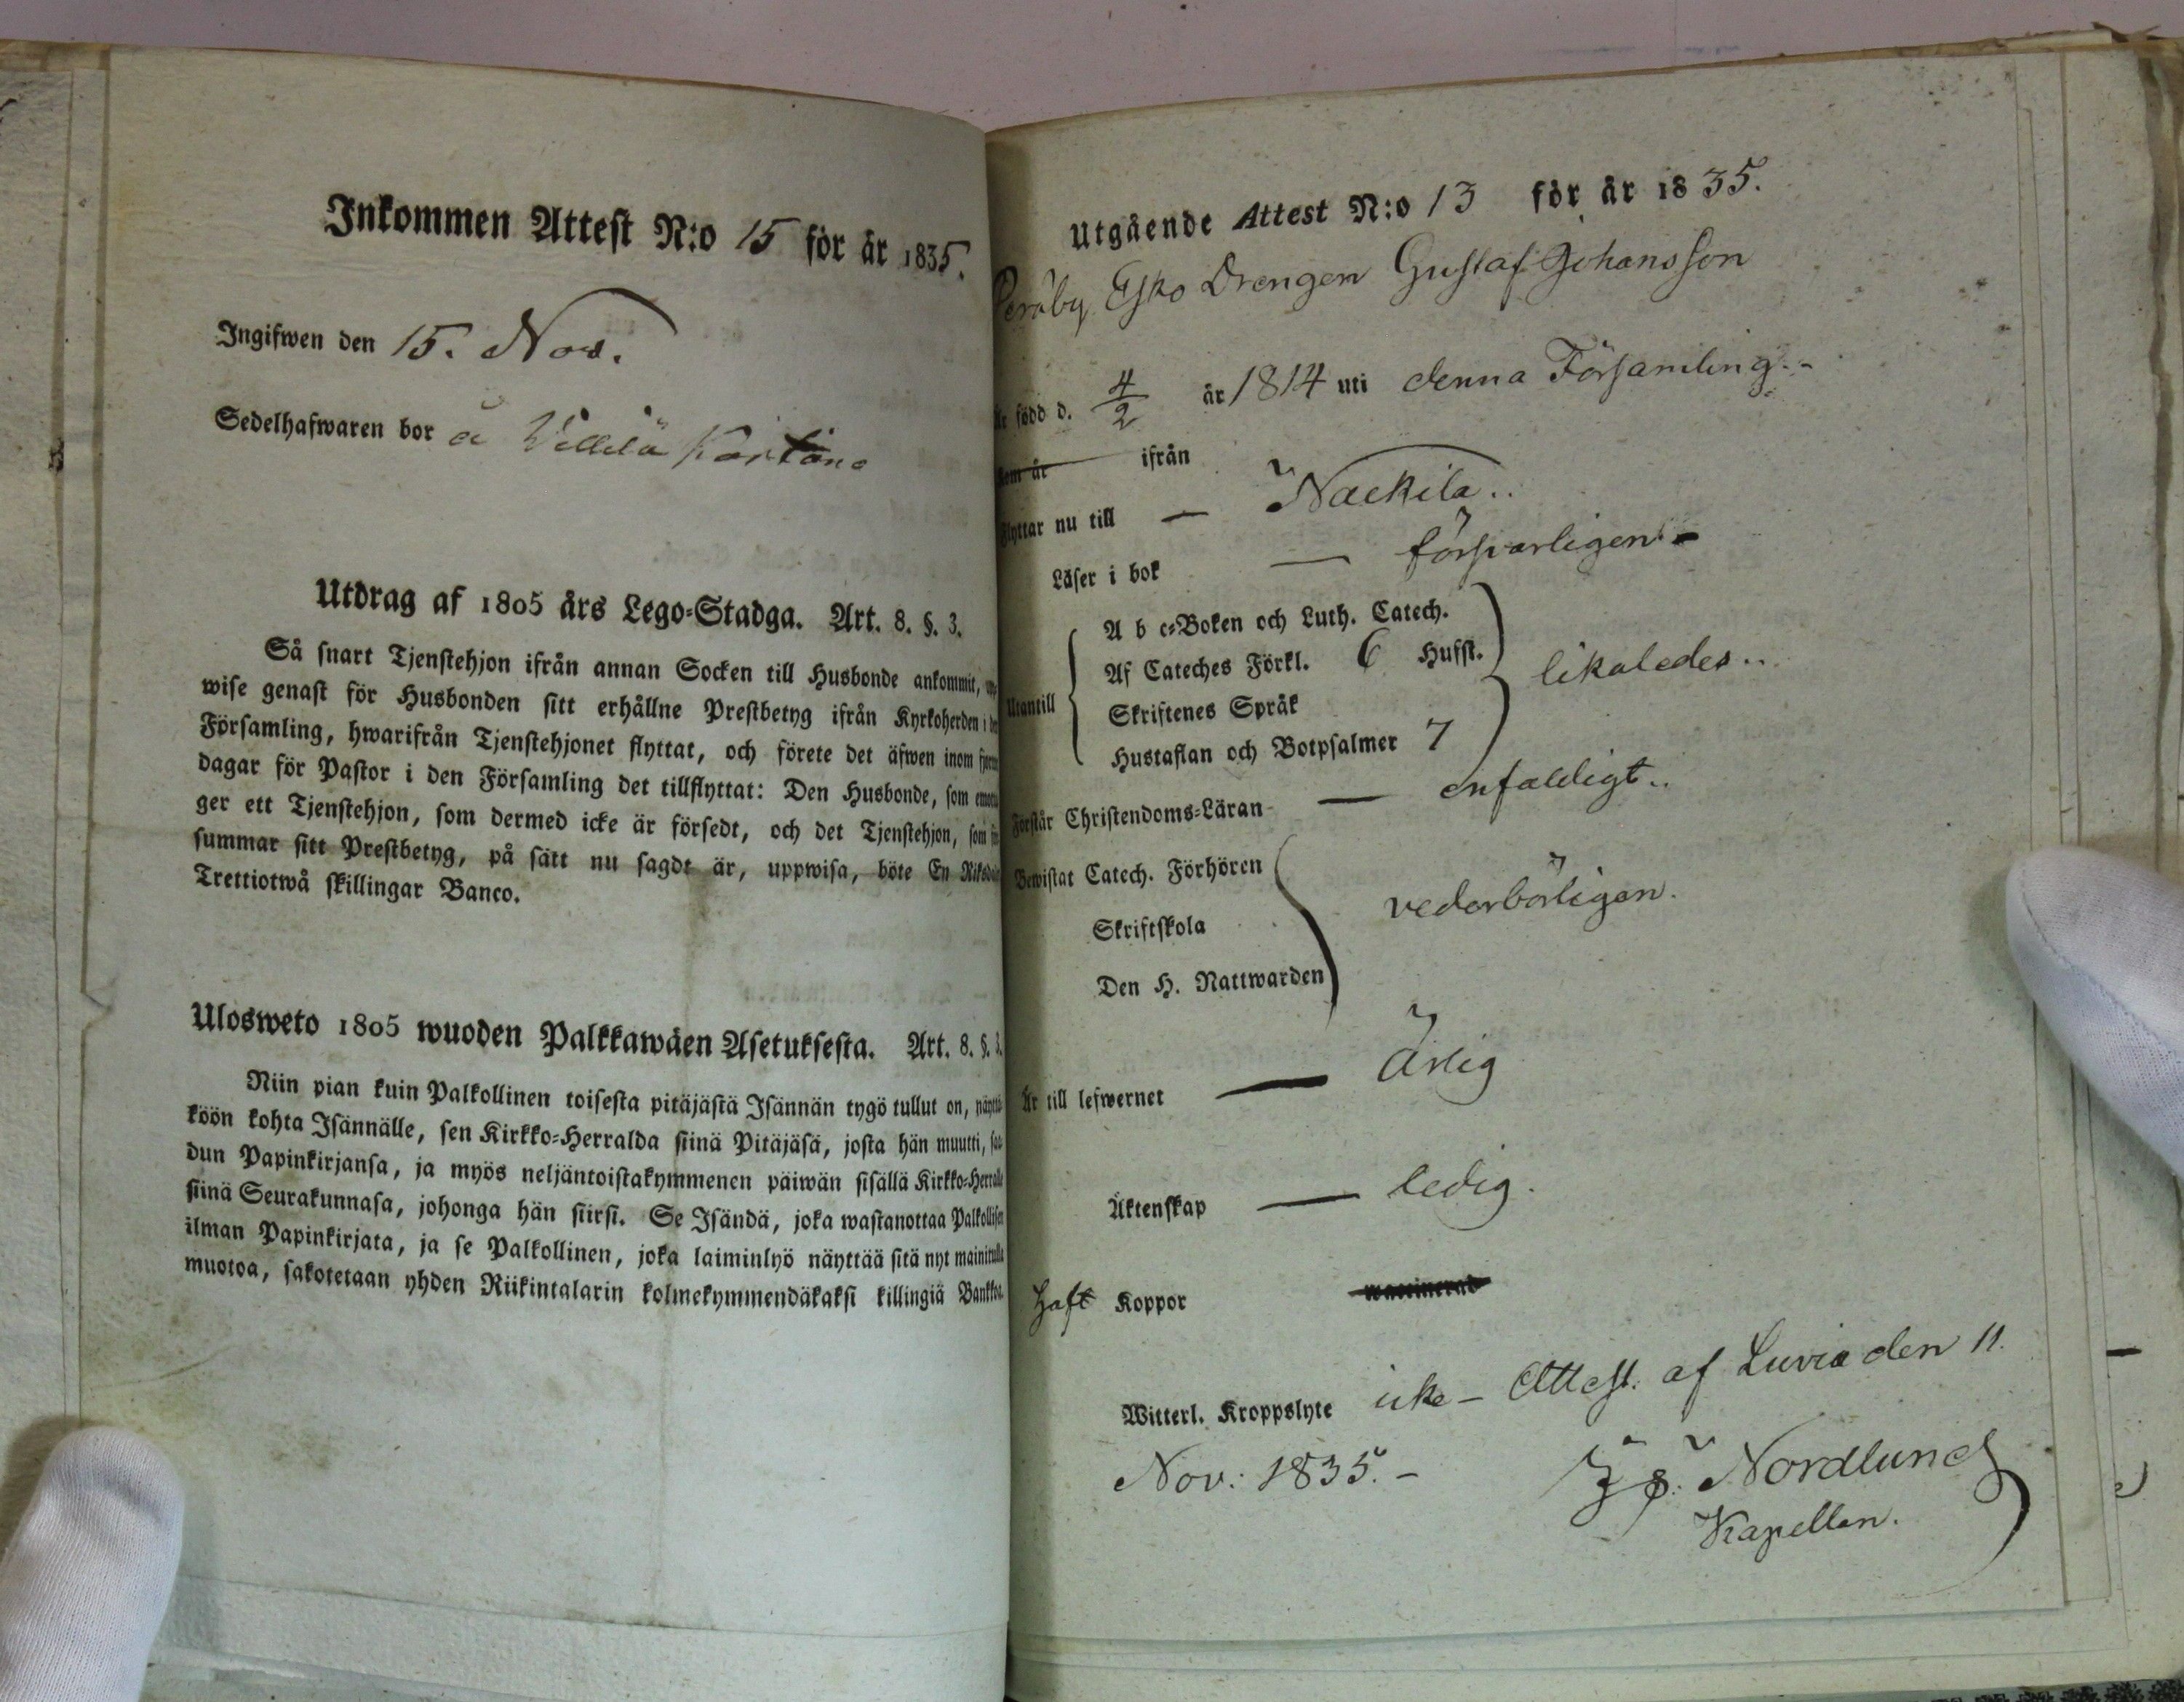 Inkommen Attest N:o 15 för år 1835.
Ingifwen den 15. Nov.
Sedelhafwaren bor å Villilä Kartano
Utdrag af 1805 års Lego-Stadga. Art. 8. §. 3.
Så snart Tjenstehjon ifrån annan Socken till Husbonde ankommit,
wise genast för Husbonden sitt erhållne Prestbetyg ifrån Kyrkoherden i
Församling, hwarifrån Tjenstehjonet flyttat, och förete det äfwen inom
dagar för Pastor i den Församling det tillflyttat: Den Husbonde, som
ger ett Tjenstehjon, som dermed icke är försedt, och det Tjenstehjon, som
summar sitt Prestbetyg, på sätt nu sagdt är, uppwisa, böte En Riksdaler
Trettiotwå skillingar Banco.
Ulosweto 1805 wuoden Palkkawäen Asetuksesta. Art. 8. §. 3.
Niin pian kuin Palkollinen toisesta pitäjästä Isännän tygö tullut on, näyttä-
köön kohta Isännälle, sen Kirkko-Herralda siinä Pitäjäsä, josta hän muutti, saa-
dun Papinkirjansa, ja myös neljäntoistakymmenen päiwän sisällä Kirkko-Herralle
siinä Seurakunnasa, johonga hän siirsi. Se Isändä, joka wastanottaa Palkollisen
ilman Papinkirjata, ja se Palkollinen, joka laiminlyö näyttää sitä nyt mainitulla
muotoa, sakotetaan yhden Riikintalarin kolmekymmendäkaksi killingiä Bankkoa.
Utgående Attest N:o 13 för år 1835.
Peräby Esko Drengen Gustaf Johansson
Är född d. 4/2 år 1814 uti denna Församling.-
Kom år ifrån
Flyttar nu till — Nackila..
Läser i bok — försvarligen. -
Utantill
A b c-Boken och Luth. Catech.
Af Cateches Förkl. 6 Hufst.
Skriftenes Språk
Hustaflan och Botpsalmer 7
likaledes..
Förstår Christendoms-Läran — enfaldigt..
Bewistat Catech. Förhören
Skriftskola
Den H. Nattwarden
vederbörligen.
Är till lefwernet — Ärlig
Äktenskap — ledig.
Haft Koppor waccinerad
Witterl. Kroppslyte icke - Attest. af Luvia den 11.
Nov: 1835. -
Nordlund
Kapellan.